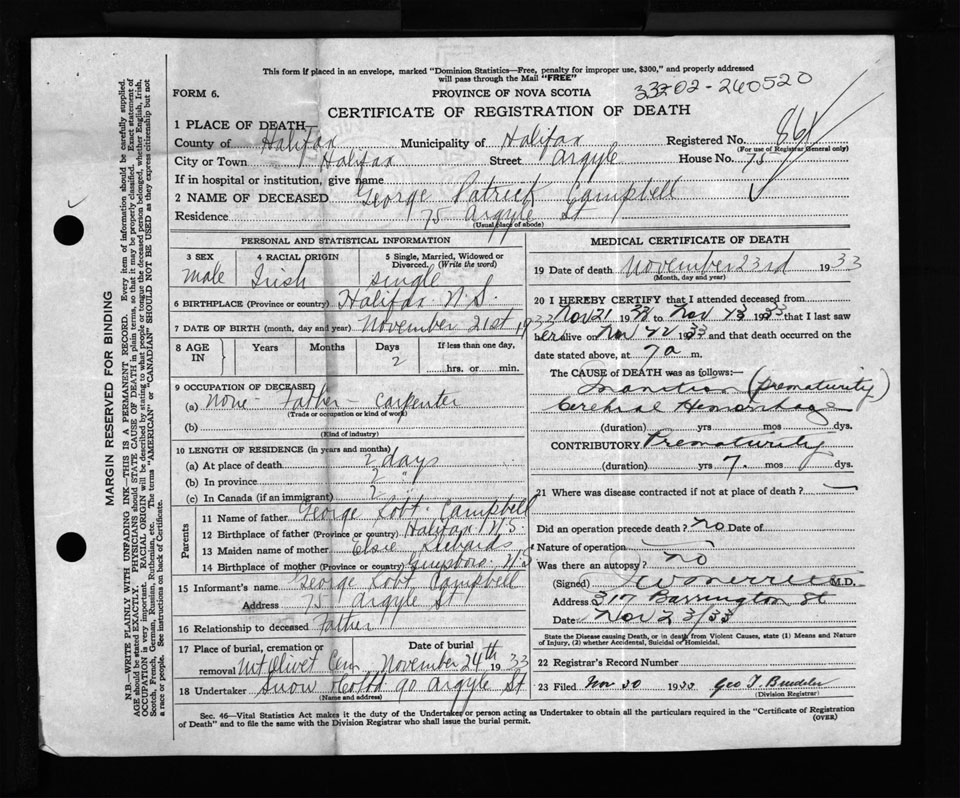 This form if placed in an envelope, marked "Dominion Statistics—Free, penalty for improper use, $300," and properly addressed
will pass through the Mail "FREE"
FORM 6.
PROVINCE OF NOVA SCOTIA
33202-260520
CERTIFICATE OF REGISTRATION OF DEATH
1 PLACE OF DEATH—
County of Halifax Municipality of Halifax Registered No. 861
(For use of Registrar General only)
City or Town Halifax Street Argyle House No. 75
If in hospital or institution, give name
2 NAME OF DECEASED George Patrick Campbell
Residence 75 Argyle St
(Usual place of abode)
PERSONAL AND STATISTICAL INFORMATION
3 SEX 4 RACIAL ORIGIN 5 Single, Married, Widowed or Divorced. (Write the word)
male Irish single
6 BIRTHPLACE (Province or country) Halifax N.S.
7 DATE OF BIRTH (month, day and year) November 21st 1933
8 AGE IN Years Months Days If less than one day,
2
hrs. or min.
9 OCCUPATION OF DECEASED
(a) None - Father - Carpenter
(Trade or occupation or kind of work)
(b)
(Kind of industry)
10 LENGTH OF RESIDENCE (in years and months)
(a) At place of death 2 days
(b) In province 2 "
(c) In Canada (if an immigrant) 2
Parents
11 Name of father George Robt. Campbell
12 Birthplace of father (Province or country) Halifax N.S
13 Maiden name of mother Elsie
14 Birthplace of mother (Province or country) N.S
15 Informant's name George Robt Campbell
Address 75 Argyle St
16 Relationship to deceased Father
17 Place of burial, cremation or removal Date of burial
Mt Olivet Cem November 24th 1933
18 Undertaker Snow & Co Ltd 90 Argyle St
(Name and address)
MEDICAL CERTIFICATE OF DEATH
19 Date of death November 23rd 1933
(Month, day and year)
20 I HEREBY CERTIFY that I attended deceased from
Nov 21 1933 to Nov 23 1933 that I last saw
h alive on Nov 22 1933 and that death occurred on the
date stated above, at 7 a m.
The CAUSE of DEATH was as follows:—
Inanition (Prematurity)
Cerebral Hemorrhage
(duration) yrs mos dys.
CONTRIBUTORY Prematurity
(duration) yrs 7. mos dys.
21 Where was disease contracted if not at place of death? —
Did an operation precede death? no Date of
Nature of operation
Was there an autopsy? no
(Signed) M.D.
Address 317 Barrington St
Date Nov 23/33
State the Disease causing Death, or in death from Violent Causes, state (1) Means and Nature
of Injury, (2) whether Accidental, Suicidal or Homicidal.
22 Registrar's Record Number
23 Filed Nov 30 1933 Geo T.
(Division Registrar)
Sec. 46—Vital Statistics Act makes it the duty of the Undertaker or person acting as Undertaker to obtain all the particulars required in the "Certificate of Registration
of Death" and to file the same with the Division Registrar who shall issue the burial permit.
(OVER)
MARGIN RESERVED FOR BINDING
N.B.—WRITE PLAINLY WITH UNFADING INK—THIS IS A PERMANENT RECORD. Every item of information should be carefully supplied.
AGE should be stated EXACTLY. PHYSICIANS should STATE CAUSE OF DEATH in plain terms, so that it may be properly classified. Exact statement of
OCCUPATION is very important. RACIAL ORIGIN will be described by stating to what people or tongue the deceased person belonged, whether English, Irish,
Scotch, French, German, Russian, Ruthenian, etc. The terms "AMERICAN" or "CANADIAN" SHOULD NOT BE USED as they express citizenship but not
a race or people. See instructions on back of Certificate.